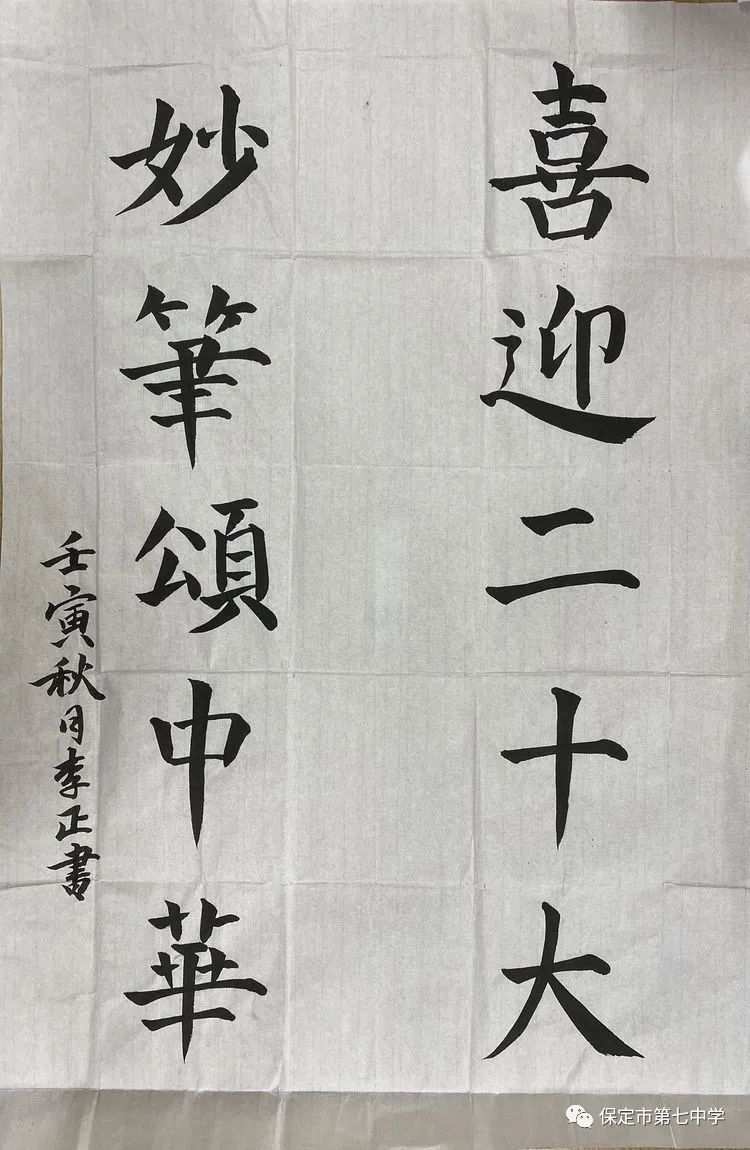 喜迎二十大
妙筆頌中華
壬寅秋月李正書
保定市第七中学